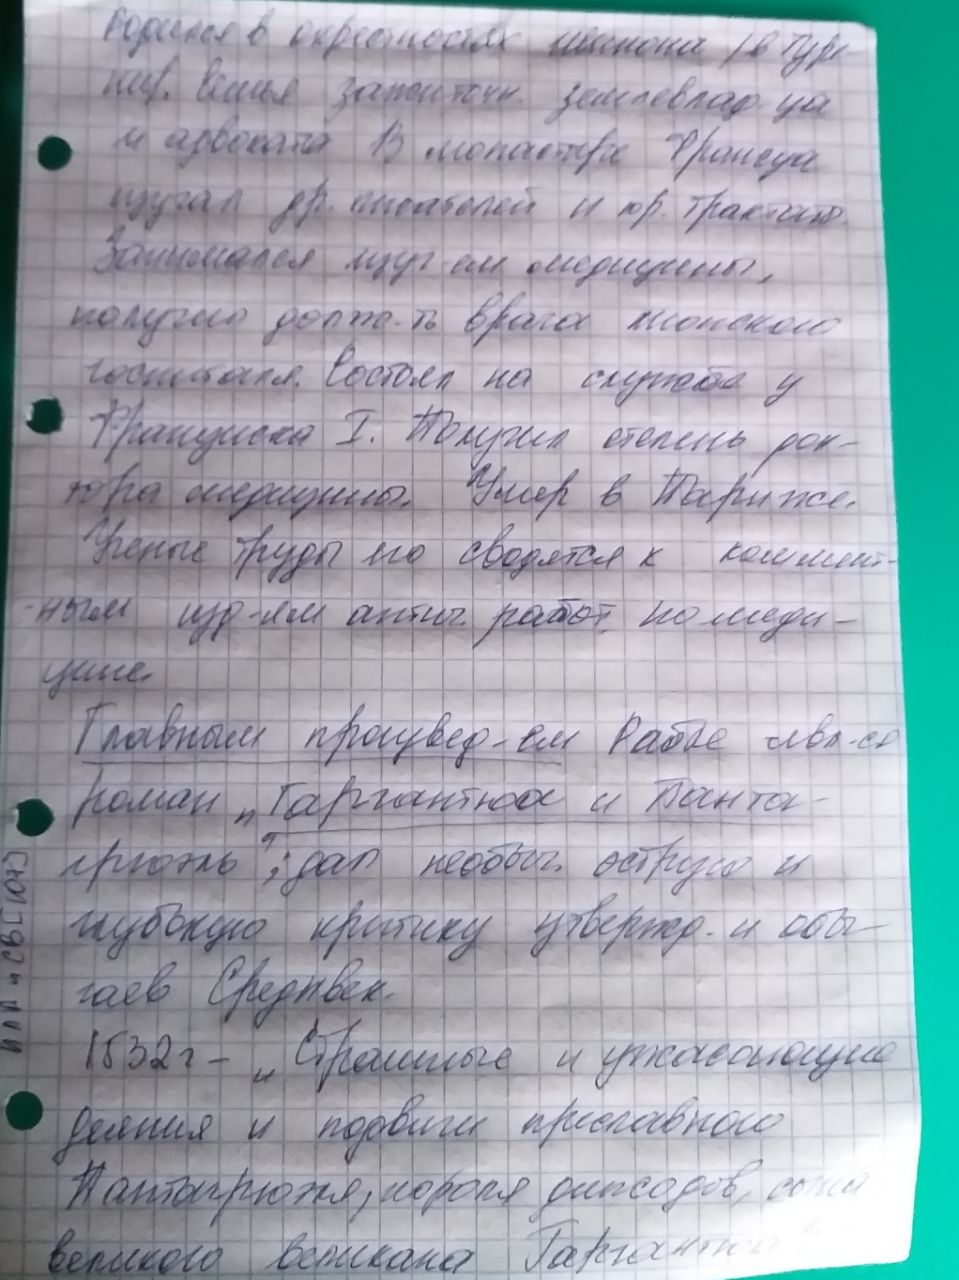 Родился в окрестностях Шинона /в Тура
нир. Семья зажиточн. землевлад-ца
и адвоката В монастыре Франсуа
изучал др. писателей и юр. трактаты.
Занимался изуч-ем медицины,
получил должн-ть врача лионского
госпиталя. Состоял на службе у
Франциска I. Получил степень док-
тора медицины. Умер в Париже.
Ученые труды его сводятся к коммент-
-ным изд-ям антич. работ по меди-
цине.
Главным произвед-ем Рабле явл-ся
роман „Гаргантюа и Панта-
грюэль"; дал необыч. острую и
глубокую критику утвержд. и обы-
чаев Средневек.
1532г - „Страшные и ужасающие
деяния и подвиги преславного
Пантагрюэля, короля дипсодов, сына
великого великана Гаргантюа"